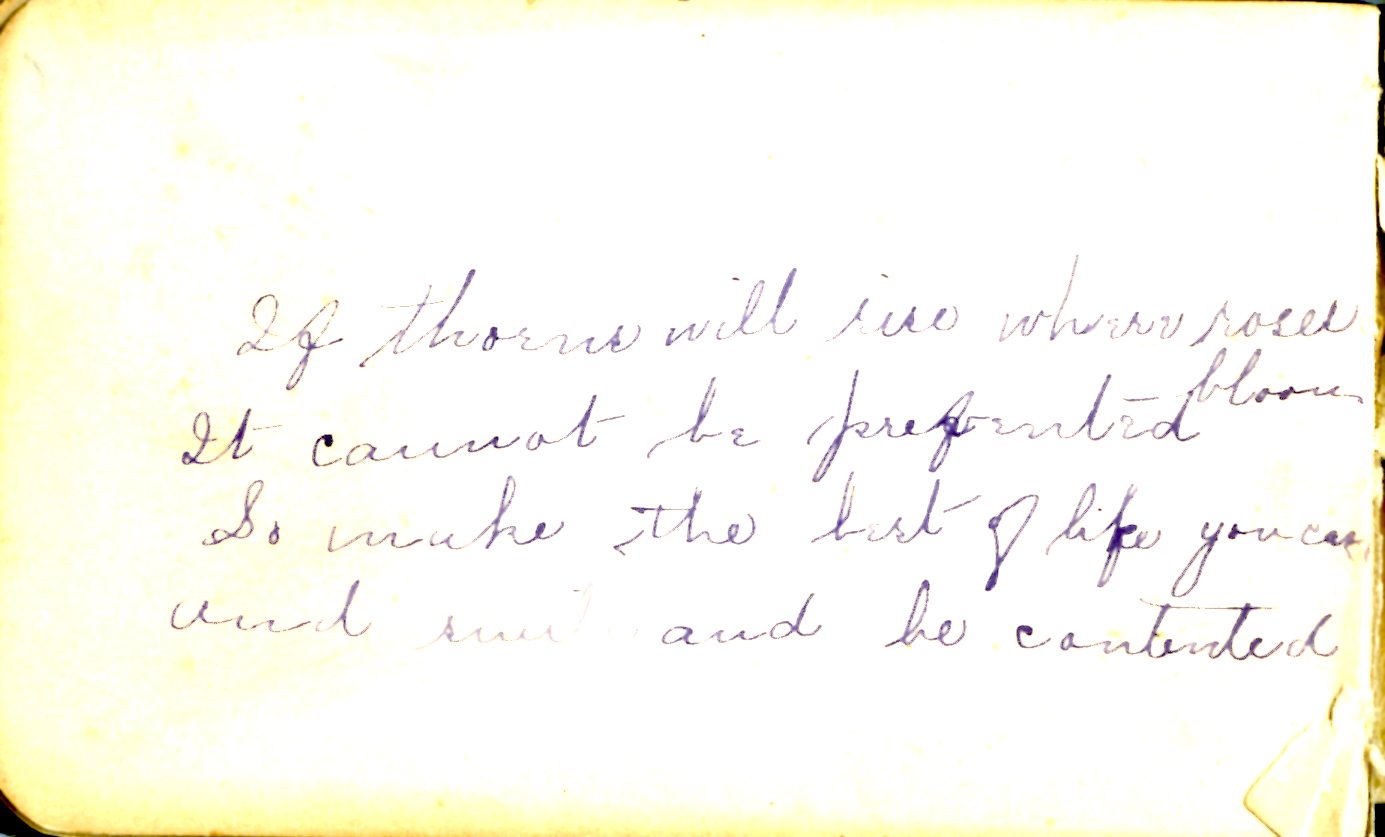 If thorns will rise where roses
bloom
It cannot be prevented
So make the best of life you can
And and be contented